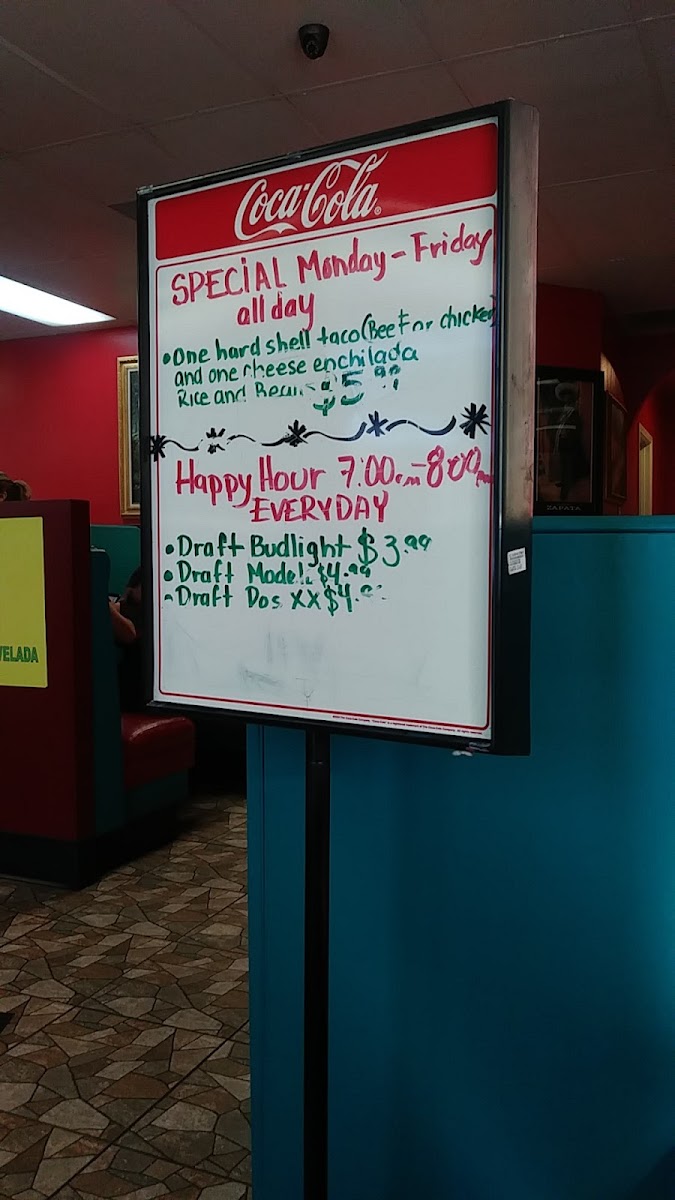 Coca-Cola
SPECIAL Monday - Friday
all day
• One hard shell taco (Beef or chicken)
and one cheese enchilada
Rice and Beans $5.99
Happy Hour 7:00am-8:00pm
EVERYDAY
• Draft Budlight $3.99
• Draft Model $4.99
• Draft Dos XX $4.
VELADA
ZAPATA